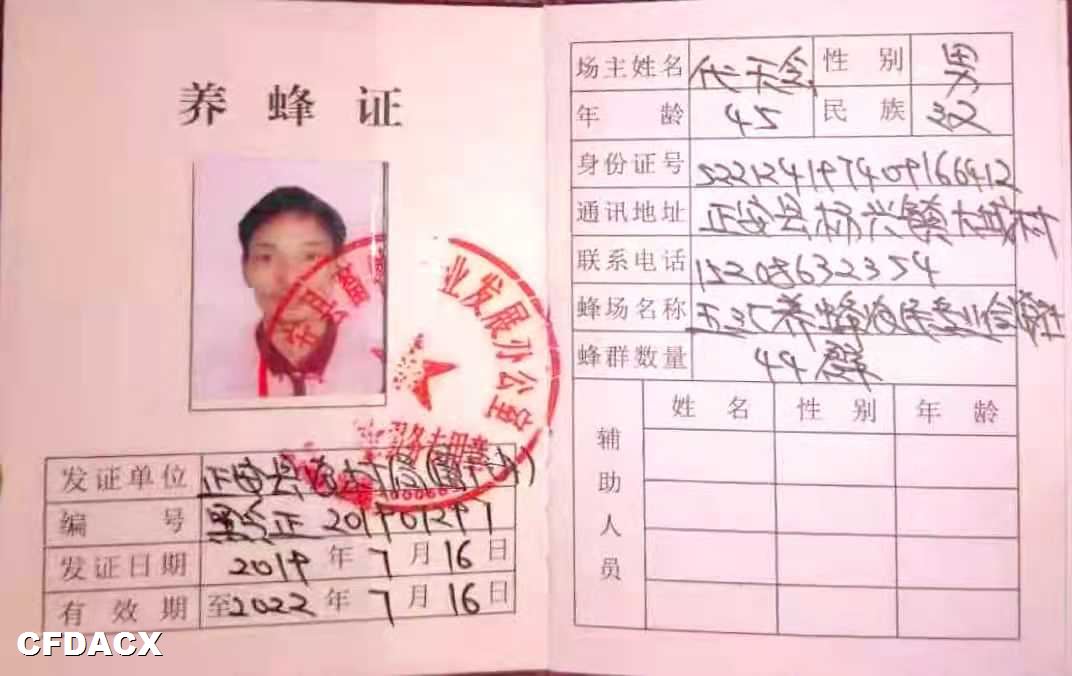 养蜂证
业发展办公室
发证单位 正安县
编号 正 201901297
发证日期 2019年7月16日
有效期 至2022年7月16日
CFDACX
场主姓名 代天 性别 男
年龄 45 民族 汉
身份证号 522124197409166412
通讯地址 正安县杨兴镇 村
联系电话 15208632354
蜂场名称 养蜂农民专业合作社
蜂群数量 44群
辅助人员 姓名 性别 年龄